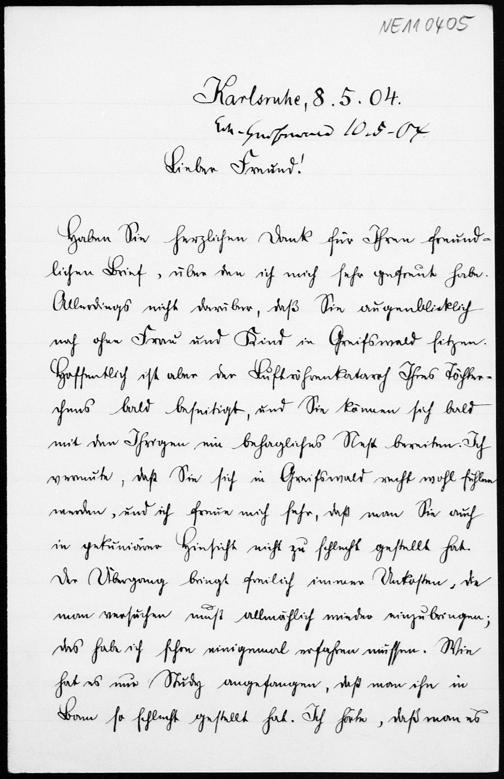 NE110405
Karlsruhe, 8. 5. 04.
10.5-04
Lieber Freund!
Haben Sie herzlichen Dank für Ihren freund-
lichen Brief, über den ich mich sehr gefreut habe.
Allerdings nicht darüber, daß Sie augenblicklich
noch ohne Frau und Kind in Greifswald sitzen.
Hoffentlich ist aber der Luftröhrenkatarrh Ihres Töchter-
chens bald beseitigt, und Sie können sich bald
mit den Ihrigen ein behagliches Nest bereiten. Ich
vermute, daß Sie sich in Greifswald recht wohl fühlen
werden, und ich freue mich sehr, daß man Sie auch
in pekuniärer Hinsicht nicht zu schlecht gestellt hat.
Der Übergang bringt freilich immer Unkosten, die
man versuchen muß allmählich wieder einzubringen;
das habe ich schon einigemal erfahren müssen. Wie
hat es nur Study angefangen, daß man ihn in
Bonn so schlecht gestellt hat. Ich hörte, daß man es